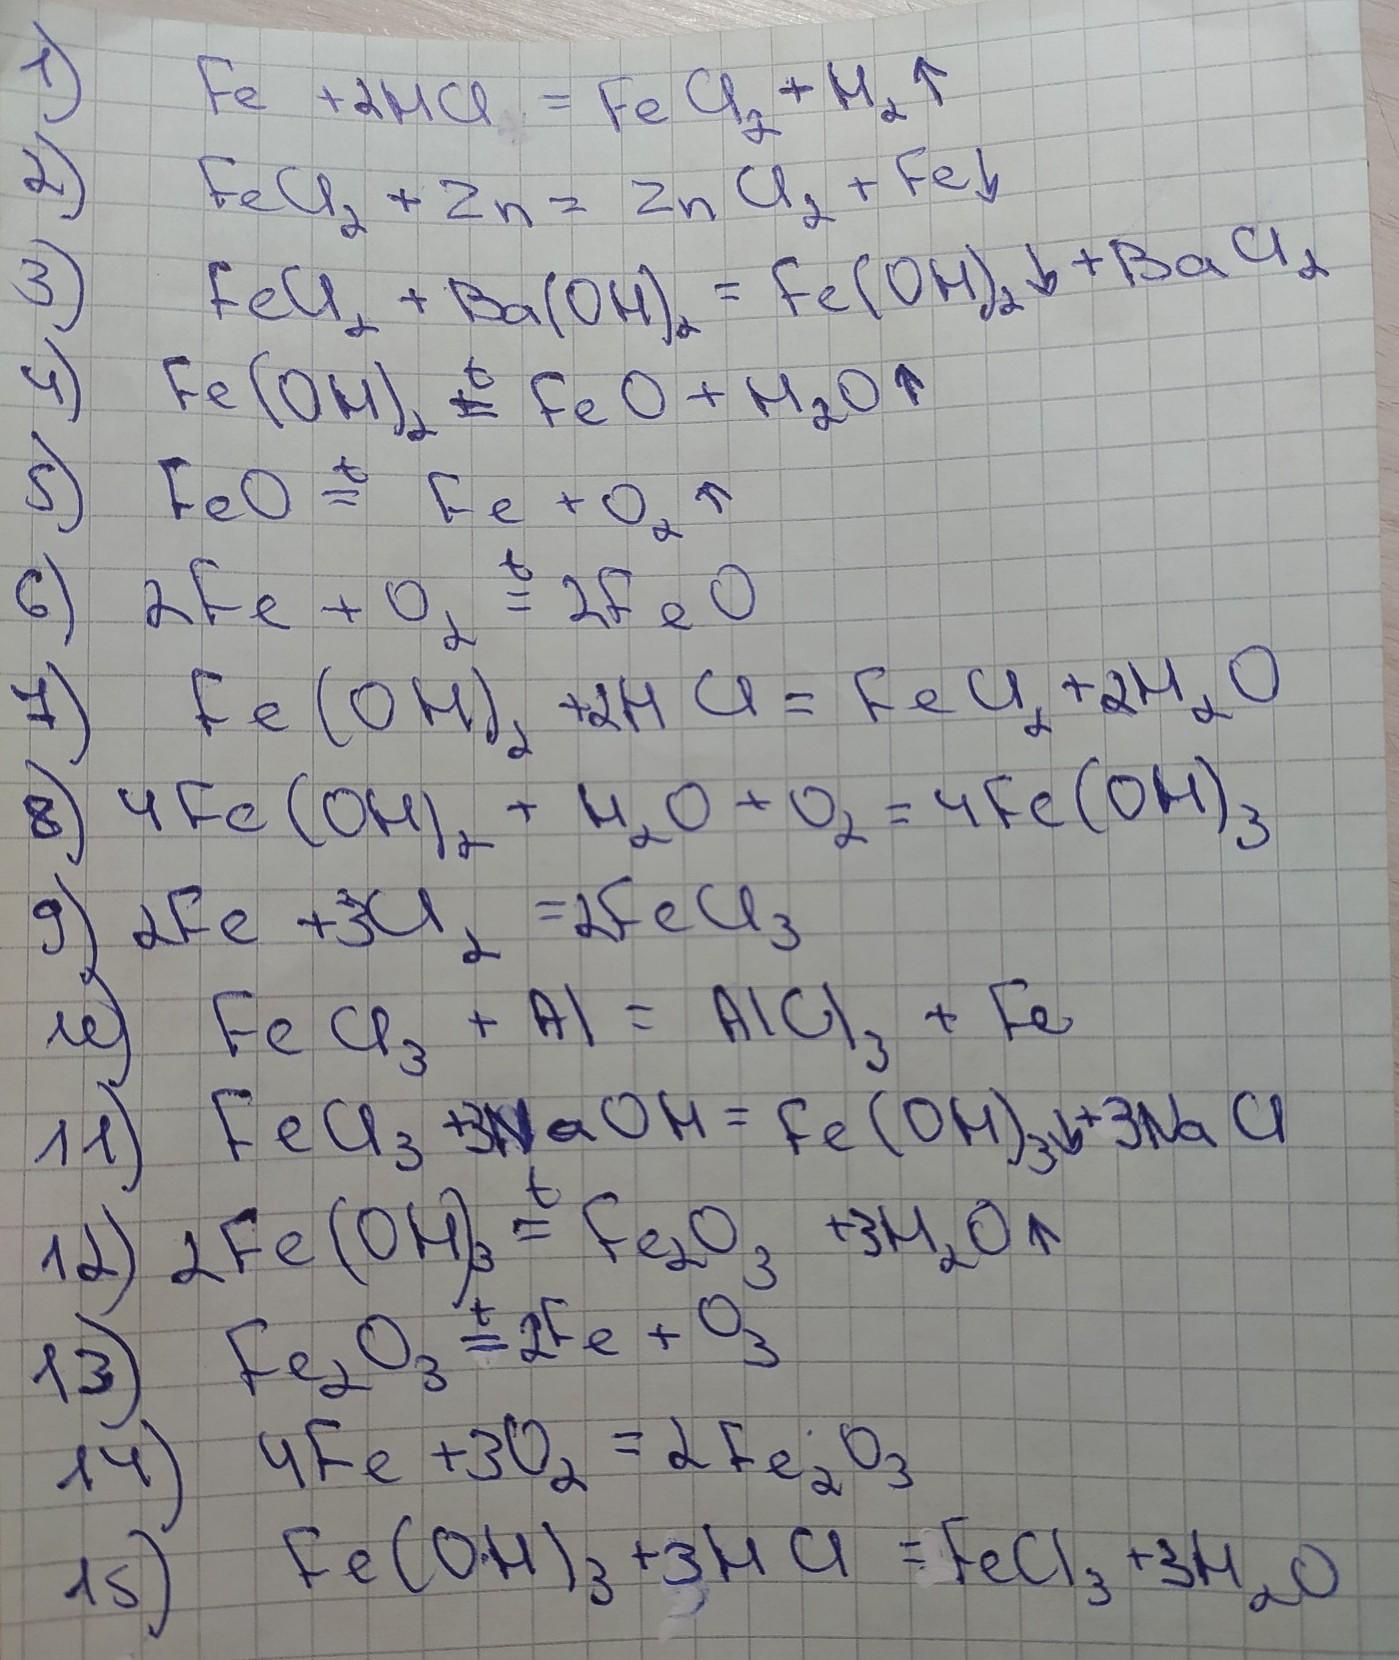 1) Fe + 2HCl = FeCl₂ + H₂↑
2) FeCl₂ + Zn = ZnCl₂ + Fe↓
3) FeCl₂ + Ba(OH)₂ = Fe(OH)₂↓ + BaCl₂
4) Fe(OH)₂ =ᵗ FeO + H₂O↑
5) FeO =ᵗ Fe + O₂↑
6) 2Fe + O₂ =ᵗ 2FeO
7) Fe(OH)₂ + 2HCl = FeCl₂ + 2H₂O
8) 4Fe(OH)₂ + H₂O + O₂ = 4Fe(OH)₃
9) 2Fe + 3Cl₂ = 2FeCl₃
10) FeCl₃ + Al = AlCl₃ + Fe
11) FeCl₃ + 3NaOH = Fe(OH)₃↓ + 3NaCl
12) 2Fe(OH)₃ =ᵗ Fe₂O₃ + 3H₂O↑
13) Fe₂O₃ =ᵗ 2Fe + O₃
14) 4Fe + 3O₂ = 2Fe₂O₃
15) Fe(OH)₃ + 3HCl = FeCl₃ + 3H₂O